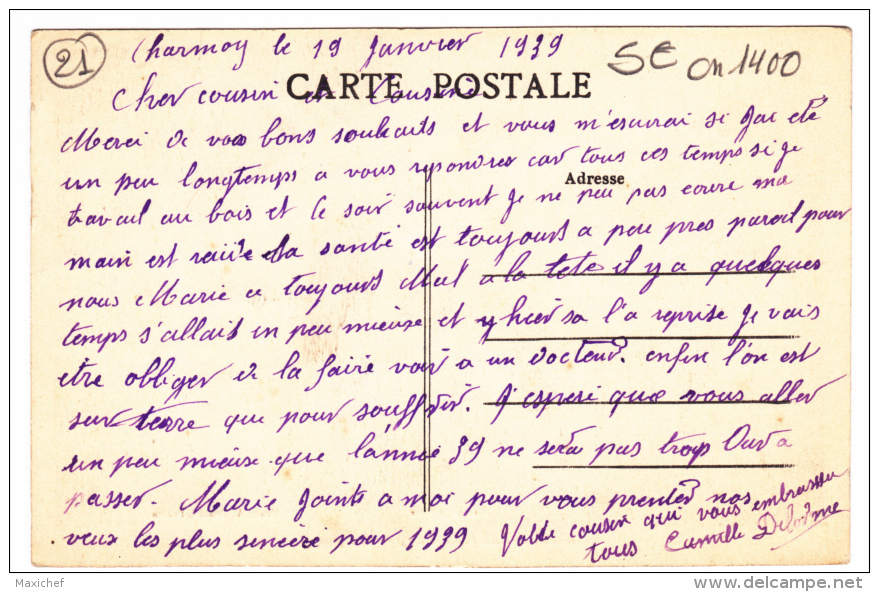 21
Charmoy le 19 Janvier 1939
SE
on 1400
CARTE POSTALE
Cher cousin et Cousine
Merci de vos bons souhaits et vous m'escuerai si Jai eté
un peu longtemps a vous repondres car tous ces temps si je
Adresse
travail au bois et le soir souvent je ne peu pas ecrire ma
main est raide la santé est toujours a peu pres pareil pour
nous Marie a toujours Mal a la tete il y a quelques
temps s'allait un peu mieuse et yhier sa l'a reprise je vais
etre obliger de la faire voir a un docteur. enfin l'on est
sur terre que pour souffrir. J'espere que vous aller
un peu mieuse que l'année 39 ne sera pas trop Dur a
passer. Marie joints a moi pour vous presenter nos
veux les plus sincère pour 1939
Votre cousin qui vous embrasse
tous Camille
Maxichef
www.delcampe.net